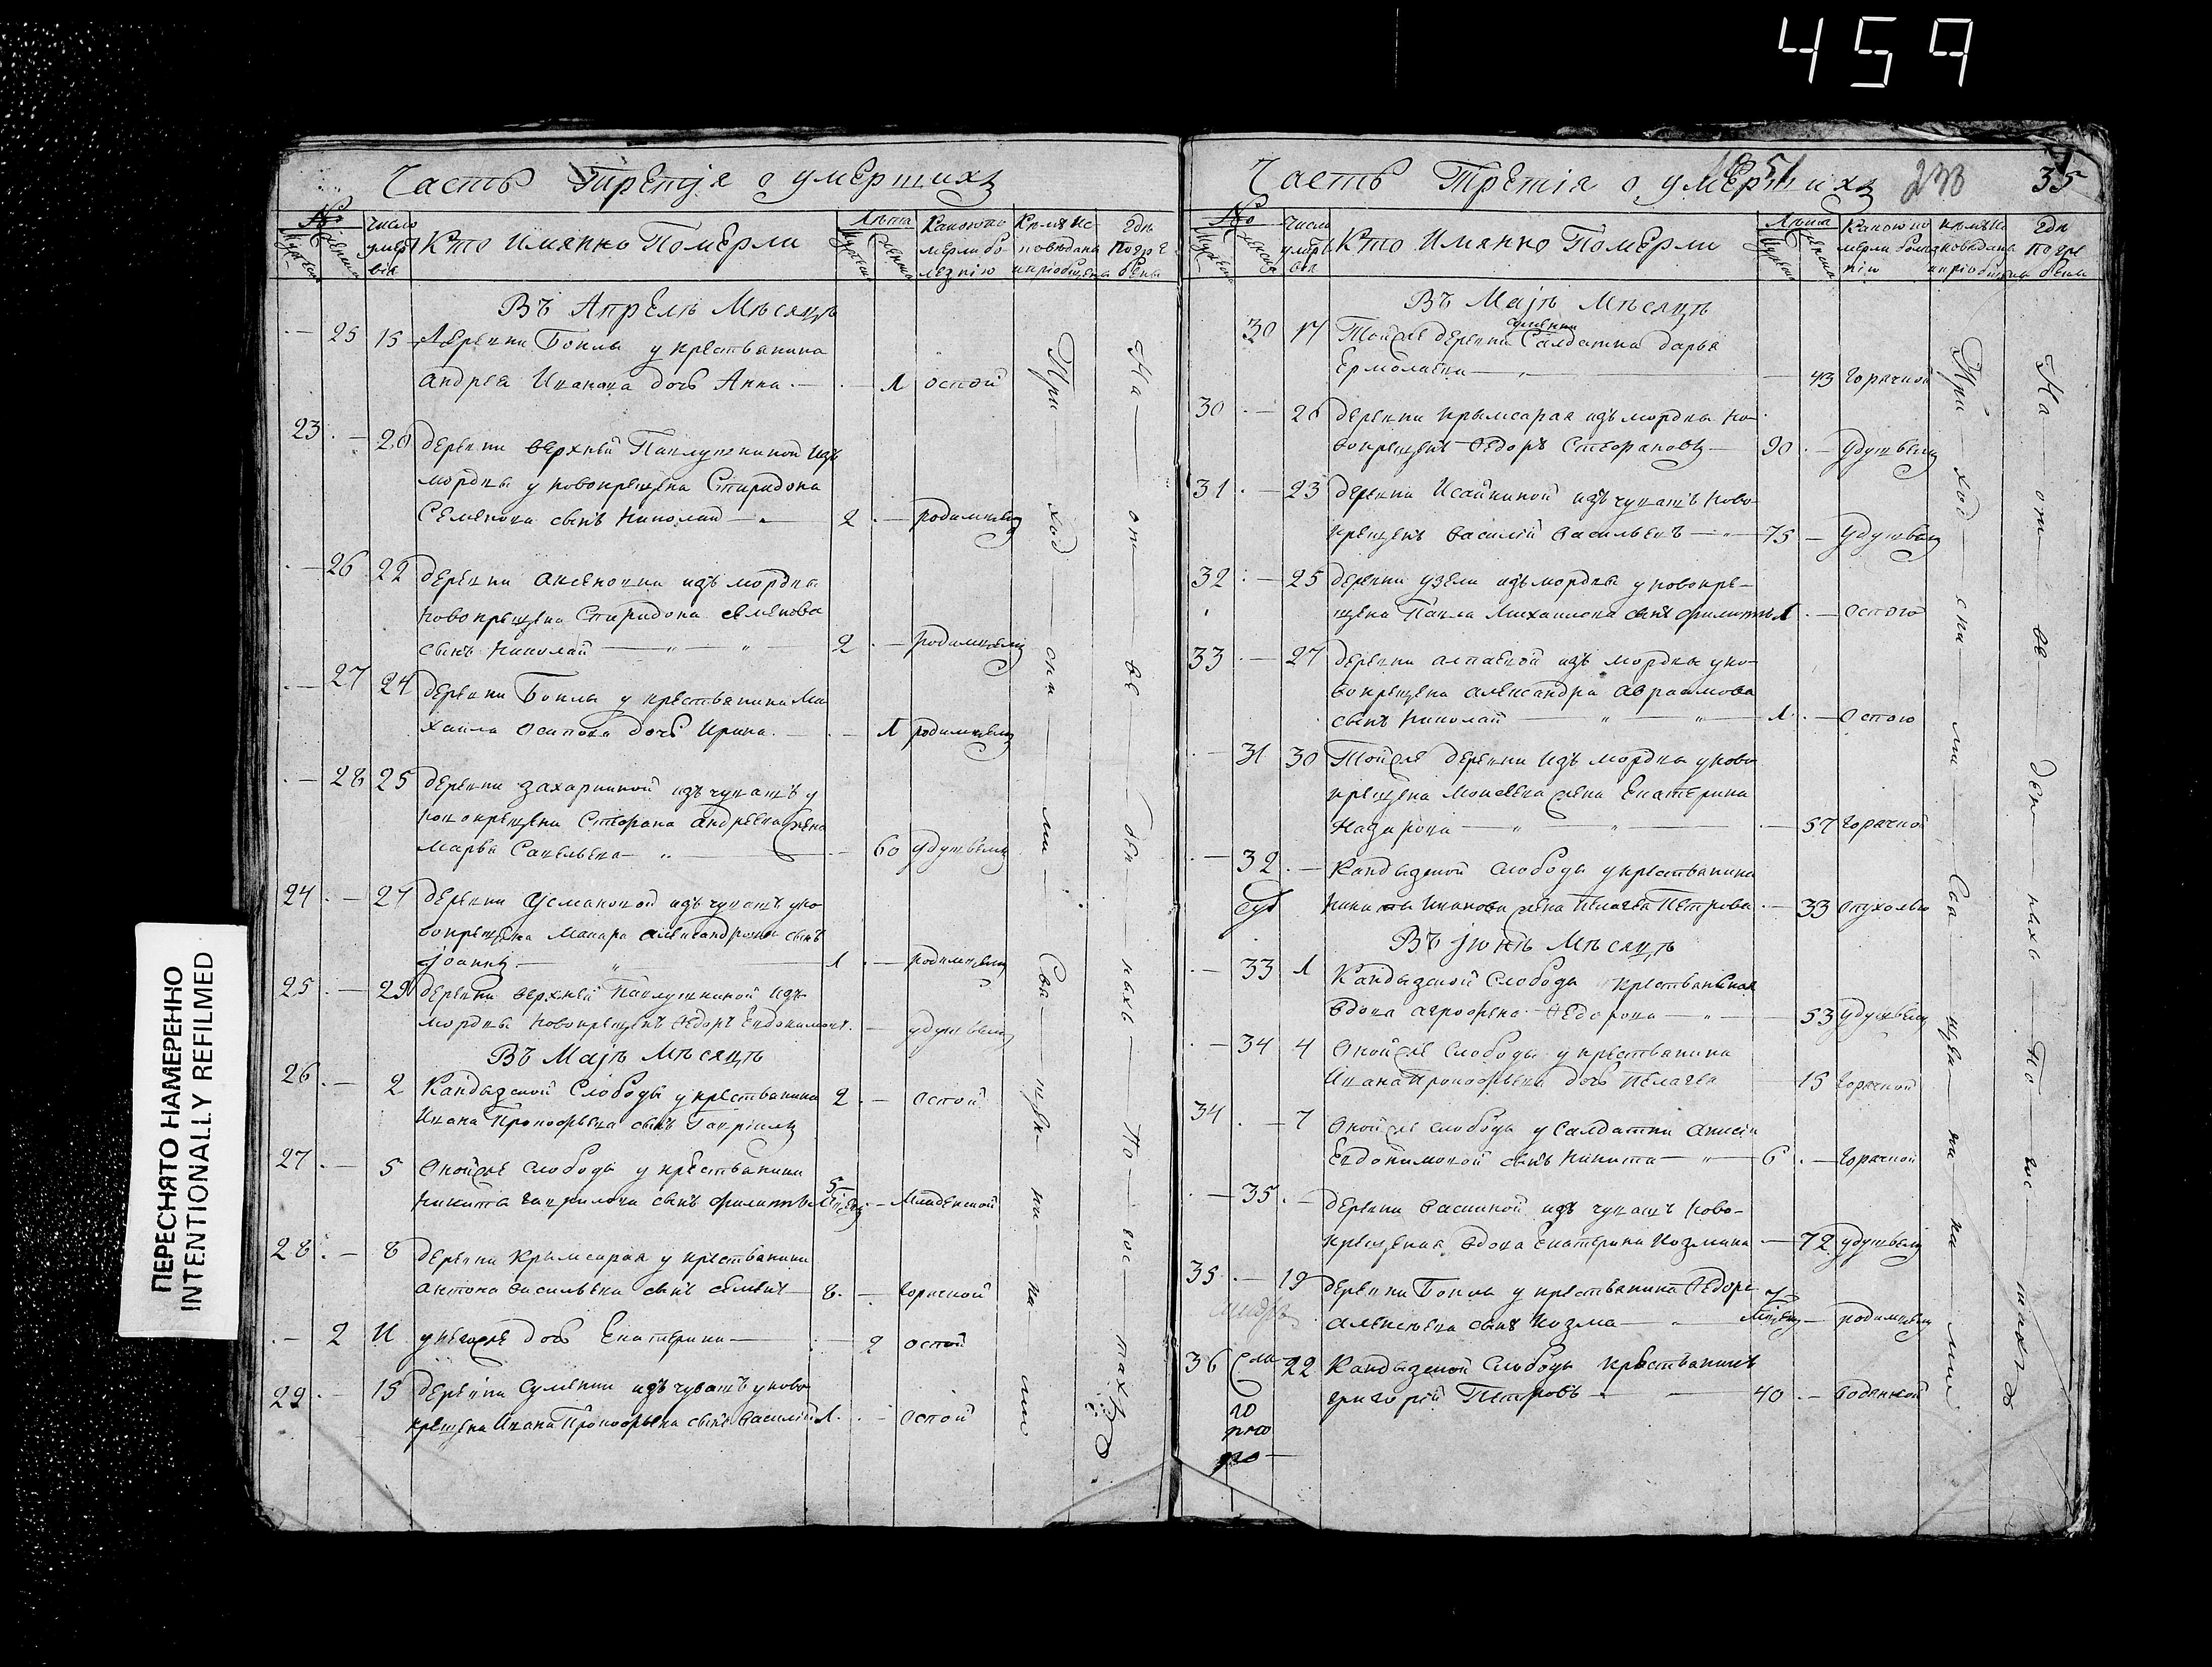 459
ПЕРЕСНЯТО НАМЕРЕННО
INTENTIONALLY REFILMED
Часть Третія о умершихъ
№
Мужеска
женска
Число
умер
вія
Кто Имянно Померли
Лѣта
Мужеска
женска
Какою по
мерли бо
лезнію
Кемъ ис
поведаны
и пріобщены
Где
погре
бены
Въ Апрелѣ Мѣсяцѣ
25 15 Деревни Боклы у крестьянина
Андрея Иванова дочь Анна 1 оспой
23 20 деревни верхней Павлушкиной изъ
мордвы у новокрещена Спиридона
Семенова сынъ Николай 2 родимцемъ
26 22 деревни Аксеновки изъ мордвы
новокрещена Спиридона Семенова
сынъ Николай 2 родимцемъ
27 24 деревни Боклы у крестьянина Ми
хаила Осипова дочь Ирина 1 родимцемъ
28 25 деревни захаркиной изъ чувашъ у
новокрещена Стефана Андреева жена
Марья Савельева 60 удушьемъ
24 27 деревни Усмановой изъ чувашъ у но
вокрещена Макара Александрова сынъ
Іоаннъ 1 родимцемъ
25 29 деревни верхней Павлушкиной изъ
мордвы новокрещенъ Ѳедоръ Евдокимовъ удушьемъ
Въ Маіѣ Мѣсяцѣ
26 2 Кандызской Слободы у крестьянина 2 оспой
Ивана Прокофьева сынъ Гавріилъ
27 5 Оной же слободы у крестьянина
Никиты Гаврилова сынъ Филиппъ 5 Младенской
28 8 деревни Крымсарая у крестьянина
Антона Васильева сынъ Семенъ 8 горячкой
2 И у негоже дочь Екатерина 2 оспой
29 15 деревни Сулейки изъ чувашъ у ново
крещена Ивана Прокофьева сынъ Василій 1 оспой
При ход ски ми Свя щен ни ка ми
На от ве ден ныхъ по гос тахъ
Часть Третія о умершихъ
51
233
35
№
Мужеска
женска
Числа
умер
вія
Кто Имянно Померли
Лѣта
Мужеска
женска
Какою по
мерли болез
нію
кемъ ис
поведаны
и пріобщены
Где
погре
бены
Въ Маіѣ Мѣсяцѣ
Сулейки
30 17 Тойже деревни Салдатка дарья
Ермолаева 43 горячкой
30 20 деревни Крымсарая изъ мордвы но
вокрещенъ Ѳедоръ Стефановъ 90 удушьемъ
31 23 деревни Исайкиной изъ чувашъ ново
крещенъ Василій Васильевъ 75 удушьемъ
32 25 деревни узели изъ мордвы у новокре
щена Павла Михаилова сынъ Филиппъ 1 оспою
33 27 деревни алпаевой изъ мордвы у но
вокрещена Александра Авраамова
сынъ Николай 1 оспою
31 30 Тойже деревни изъ мордвы у ново
крещена Моисеева жена Екатерина
Назарова 57 горячкой
32 Кандызской слободы у крестьянина
Никиты Иванова жена Пелагея Петрова 33 опухолью
Въ Іюнѣ Мѣсяцѣ
33 1 Кандызской Слободы крестьянская
вдова Агрофена Ѳедорова 53 удушьемъ
34 4 Оной же Слободы у крестьянина
Ивана Прокофьева дочь Пелагея 15 горячкой
34 7 Оной же слободы у салдатки Анисіи
Евдокимовой сынъ Никита 6 горячкой
35 деревни Васкиной изъ чувашъ ново
крещеная вдова Екатерина Козмина 72 удушьемъ
35 19 деревни Боклы у крестьянина Ѳедора
Алексеева сынъ Козма родимцемъ
36 22 Кандызской Слободы крестьянинъ
григорій Петровъ 40 водянкой
При ход ски ми Свя щен ни ка ми
На от ве ден ныхъ по гос тахъ